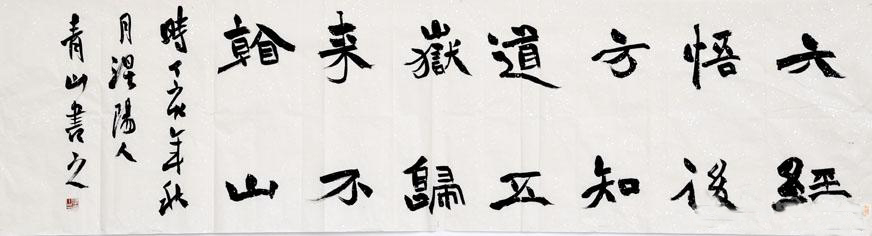 六經
悟後
方知
道五
嶽歸
来不
看山
時丁亥年秋
月涅陽人
青山書之